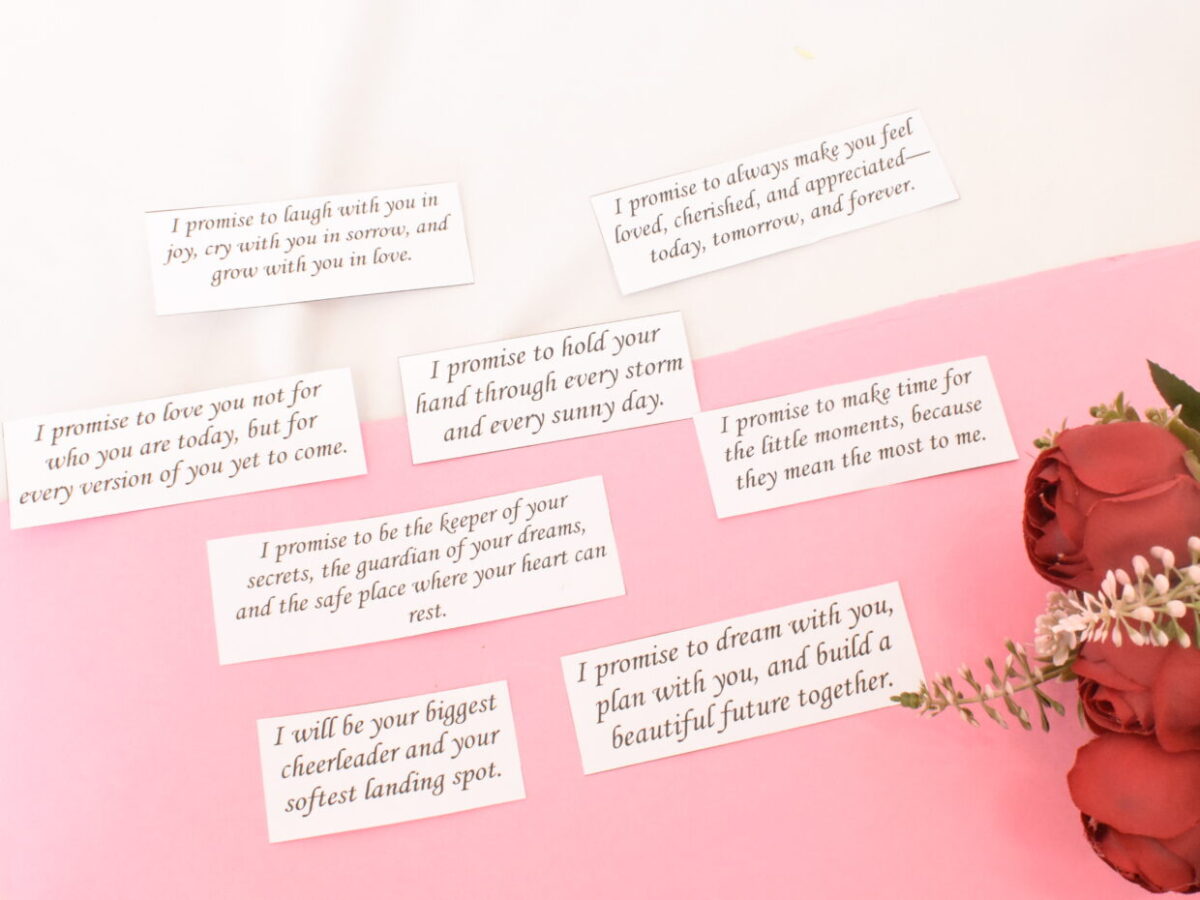 I promise to laugh with you in
joy, cry with you in sorrow, and
grow with you in love.
I promise to always make you feel
loved, cherished, and appreciated—
today, tomorrow, and forever.
I promise to hold your
hand through every storm
and every sunny day.
I promise to love you not for
who you are today, but for
every version of you yet to come.
I promise to make time for
the little moments, because
they mean the most to me.
I promise to be the keeper of your
secrets, the guardian of your dreams,
and the safe place where your heart can
rest.
I promise to dream with you,
plan with you, and build a
beautiful future together.
I will be your biggest
cheerleader and your
softest landing spot.